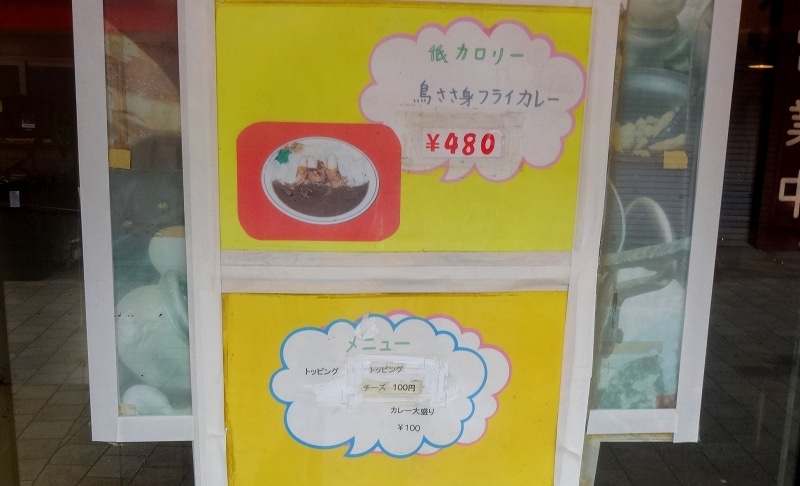 低カロリー
鳥ささ身フライカレー
¥480
メニュー
トッピング
トッピング
チーズ 100円
カレー大盛り
¥100
業中